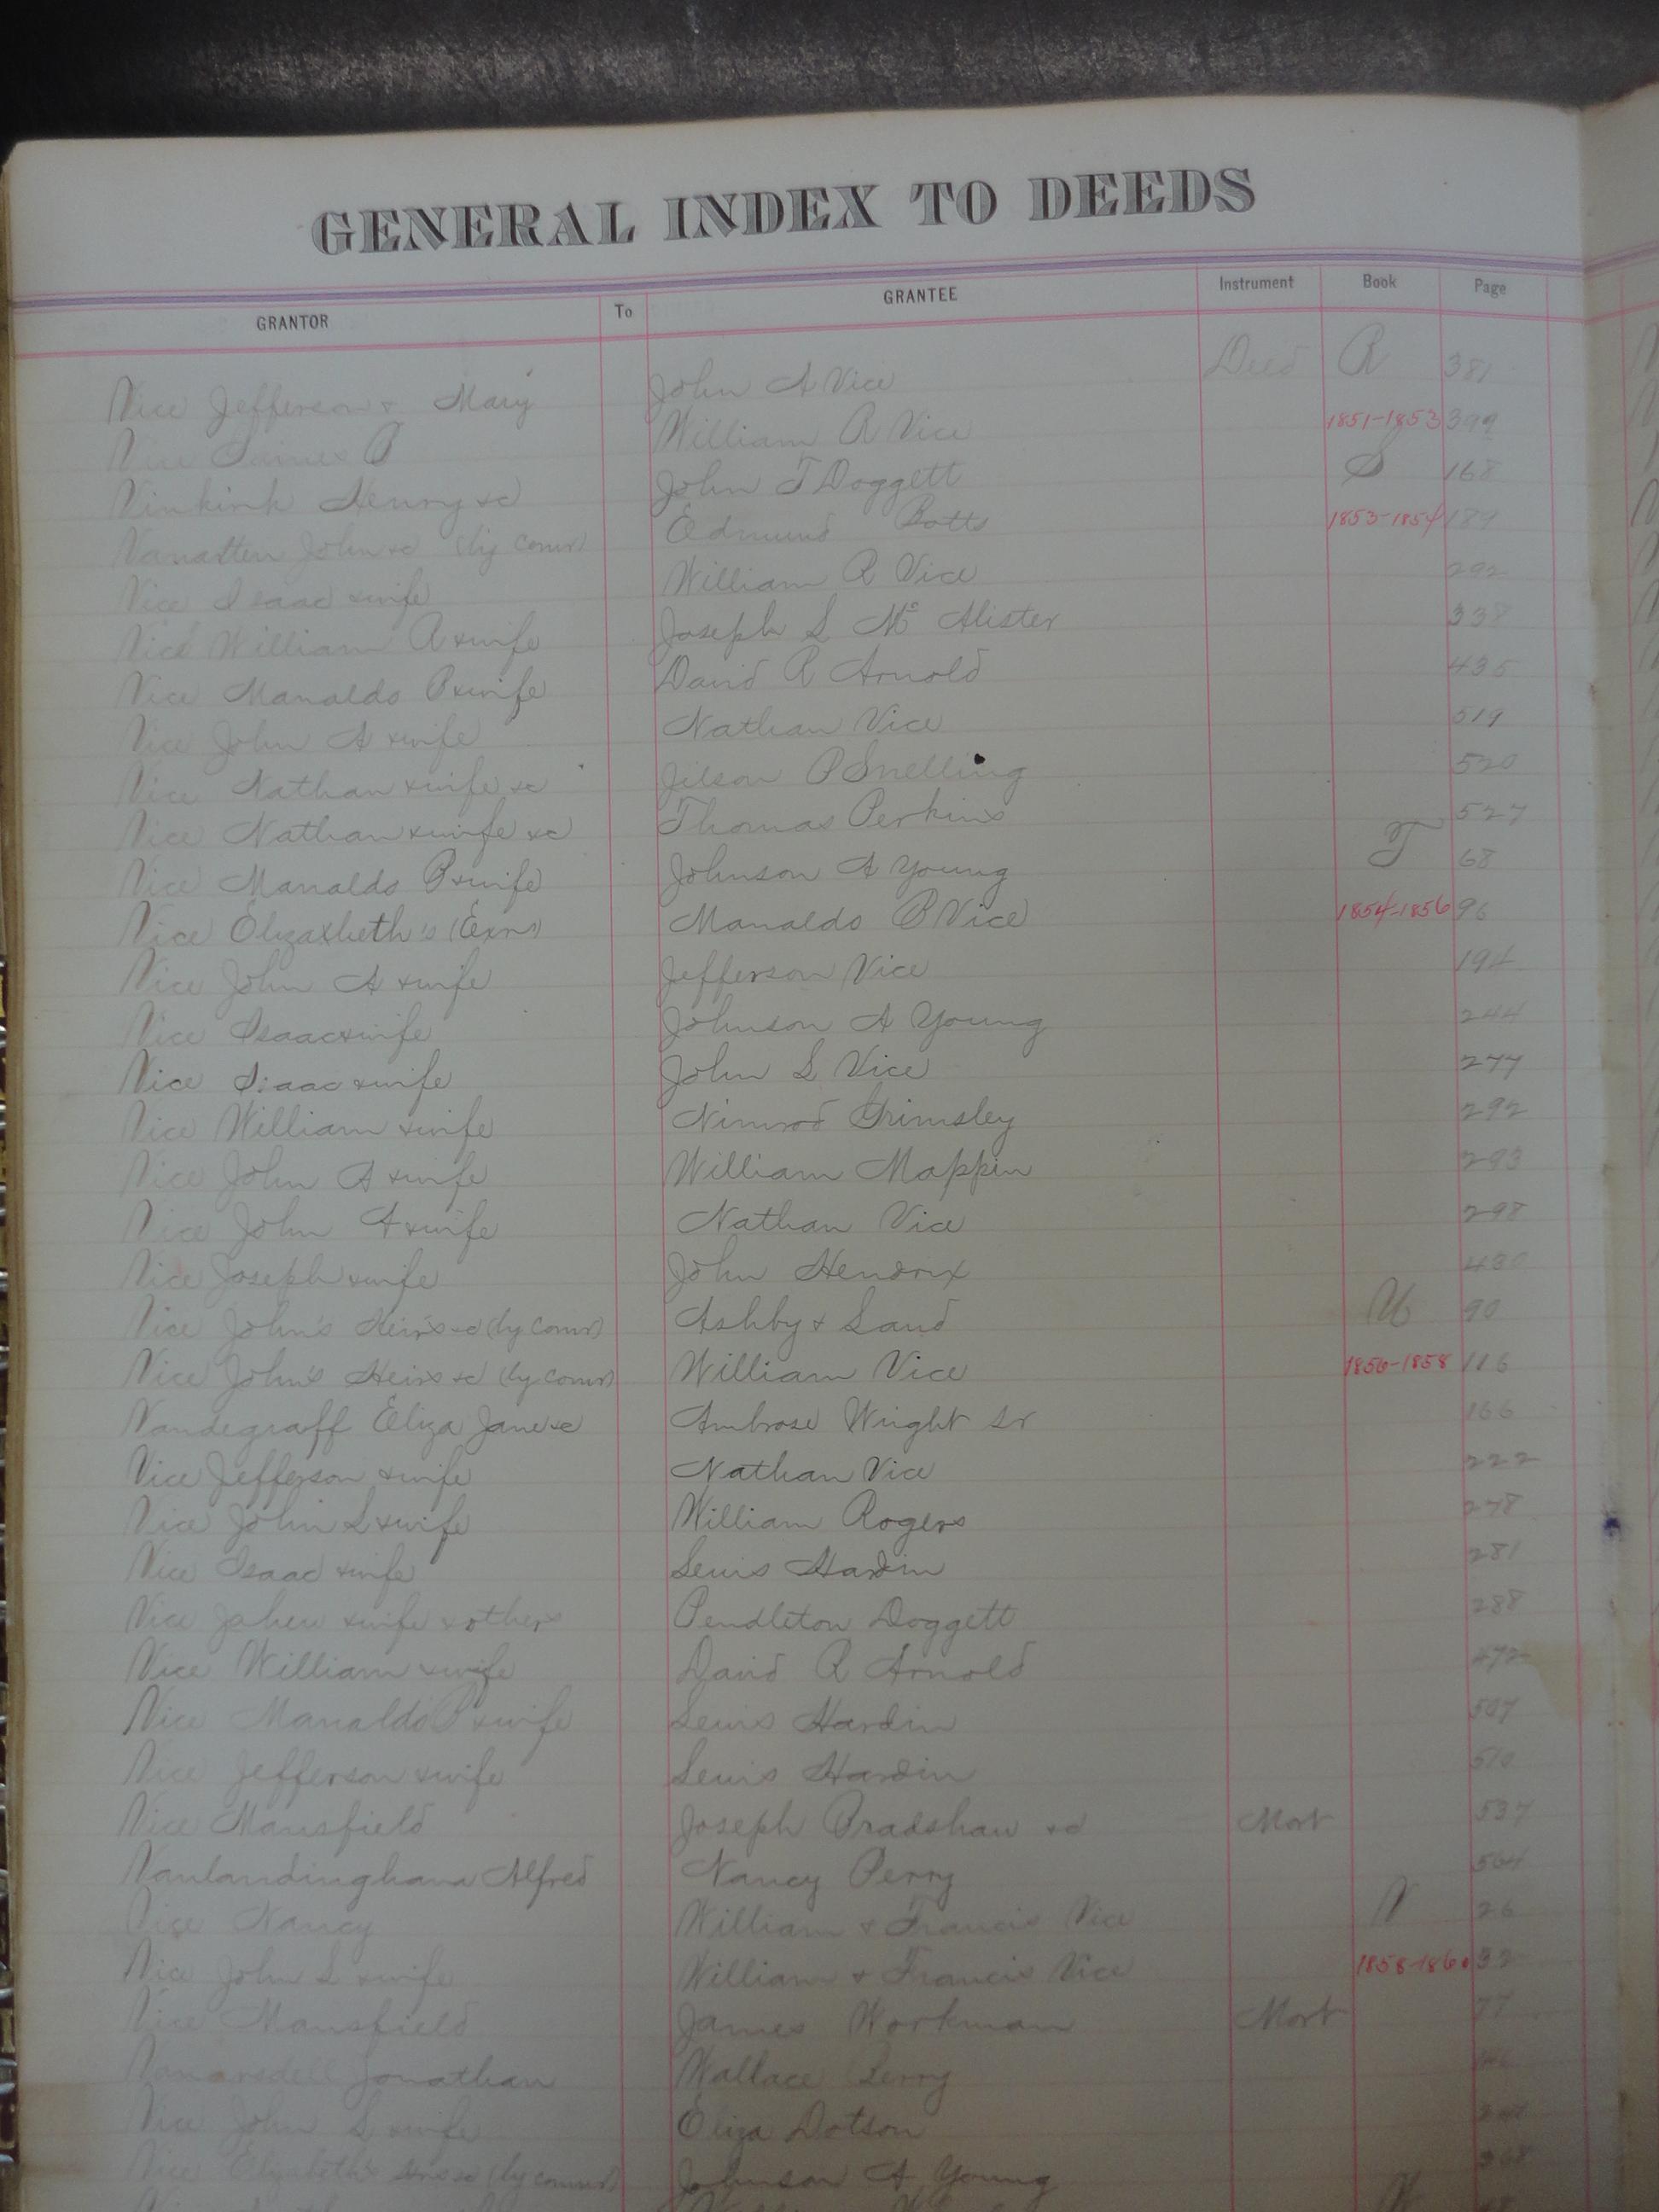 GENERAL INDEX TO DEEDS
GRANTOR To GRANTEE Instrument Book Page
Vice Jefferson & Mary John A Vice Deed R 381
Vice James B William R Vice 1851-1853 399
Vinkirk Henry &c John T Doggett S 168
Vanatten John &c (by comr) Edmund Botts 1853-1854 189
Vice Isaac & wife William R Vice 292
Vice William R & wife Joseph S Mc Alister 338
Vice Manaldo P & wife David R Arnold 435
Vice John A & wife Nathan Vice 519
Vice Nathan & wife &c Jilson P Snelling 520
Vice Nathan & wife &c Thomas Perkins 527
Vice Manaldo P & wife Johnson A Young T 68
Vice Elizabeth's (Exrs) Manaldo P Vice 1854-1856 96
Vice John A & wife Jefferson Vice 194
Vice Isaac & wife Johnson A Young 244
Vice Isaac & wife John S Vice 277
Vice William & wife Nimrod Grimsley 292
Vice John A & wife William Mappin 293
Vice John A & wife Nathan Vice 298
Vice Joseph & wife John Hendrix 480
Vice John's Heirs &c (by comr) Ashby & Land U 90
Vice John's Heirs &c (by comr) William Vice 1856-1858 116
Vandegraff Eliza Jane &c Ambrose Wright Sr 166
Vice Jefferson & wife Nathan Vice 222
Vice John S & wife William Rogers 278
Vice Isaac & wife Lewis Hardin 281
Vice & wife & others Pendleton Doggett 288
Vice William & wife David R Arnold 472
Vice Manaldo P & wife Lewis Hardin 507
Vice Jefferson & wife Lewis Hardin 510
Vice Mansfield Joseph Bradshaw &c Mort 537
Vanlandingham Alfred Nancy Perry 564
Vice Nancy William & Francis Vice V 26
Vice John S & wife William & Francis Vice 1858-1860 32
Vice Mansfield James Workman Mort 77
Vanarsdell Jonathan Wallace Berry
Vice John S & wife Eliza Dotson
Vice Elizabeth's (by comr) Johnson A Young 368